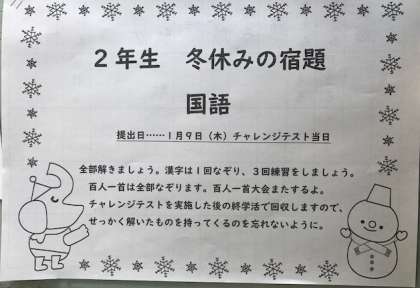 2年生 冬休みの宿題
国語
提出日……1月9日(木)チャレンジテスト当日
全部解きましょう。漢字は1回なぞり、3回練習をしましょう。
百人一首は全部なぞります。百人一首大会またするよ。
チャレンジテストを実施した後の終学活で回収しますので、
せっかく解いたものを持ってくるのを忘れないように。